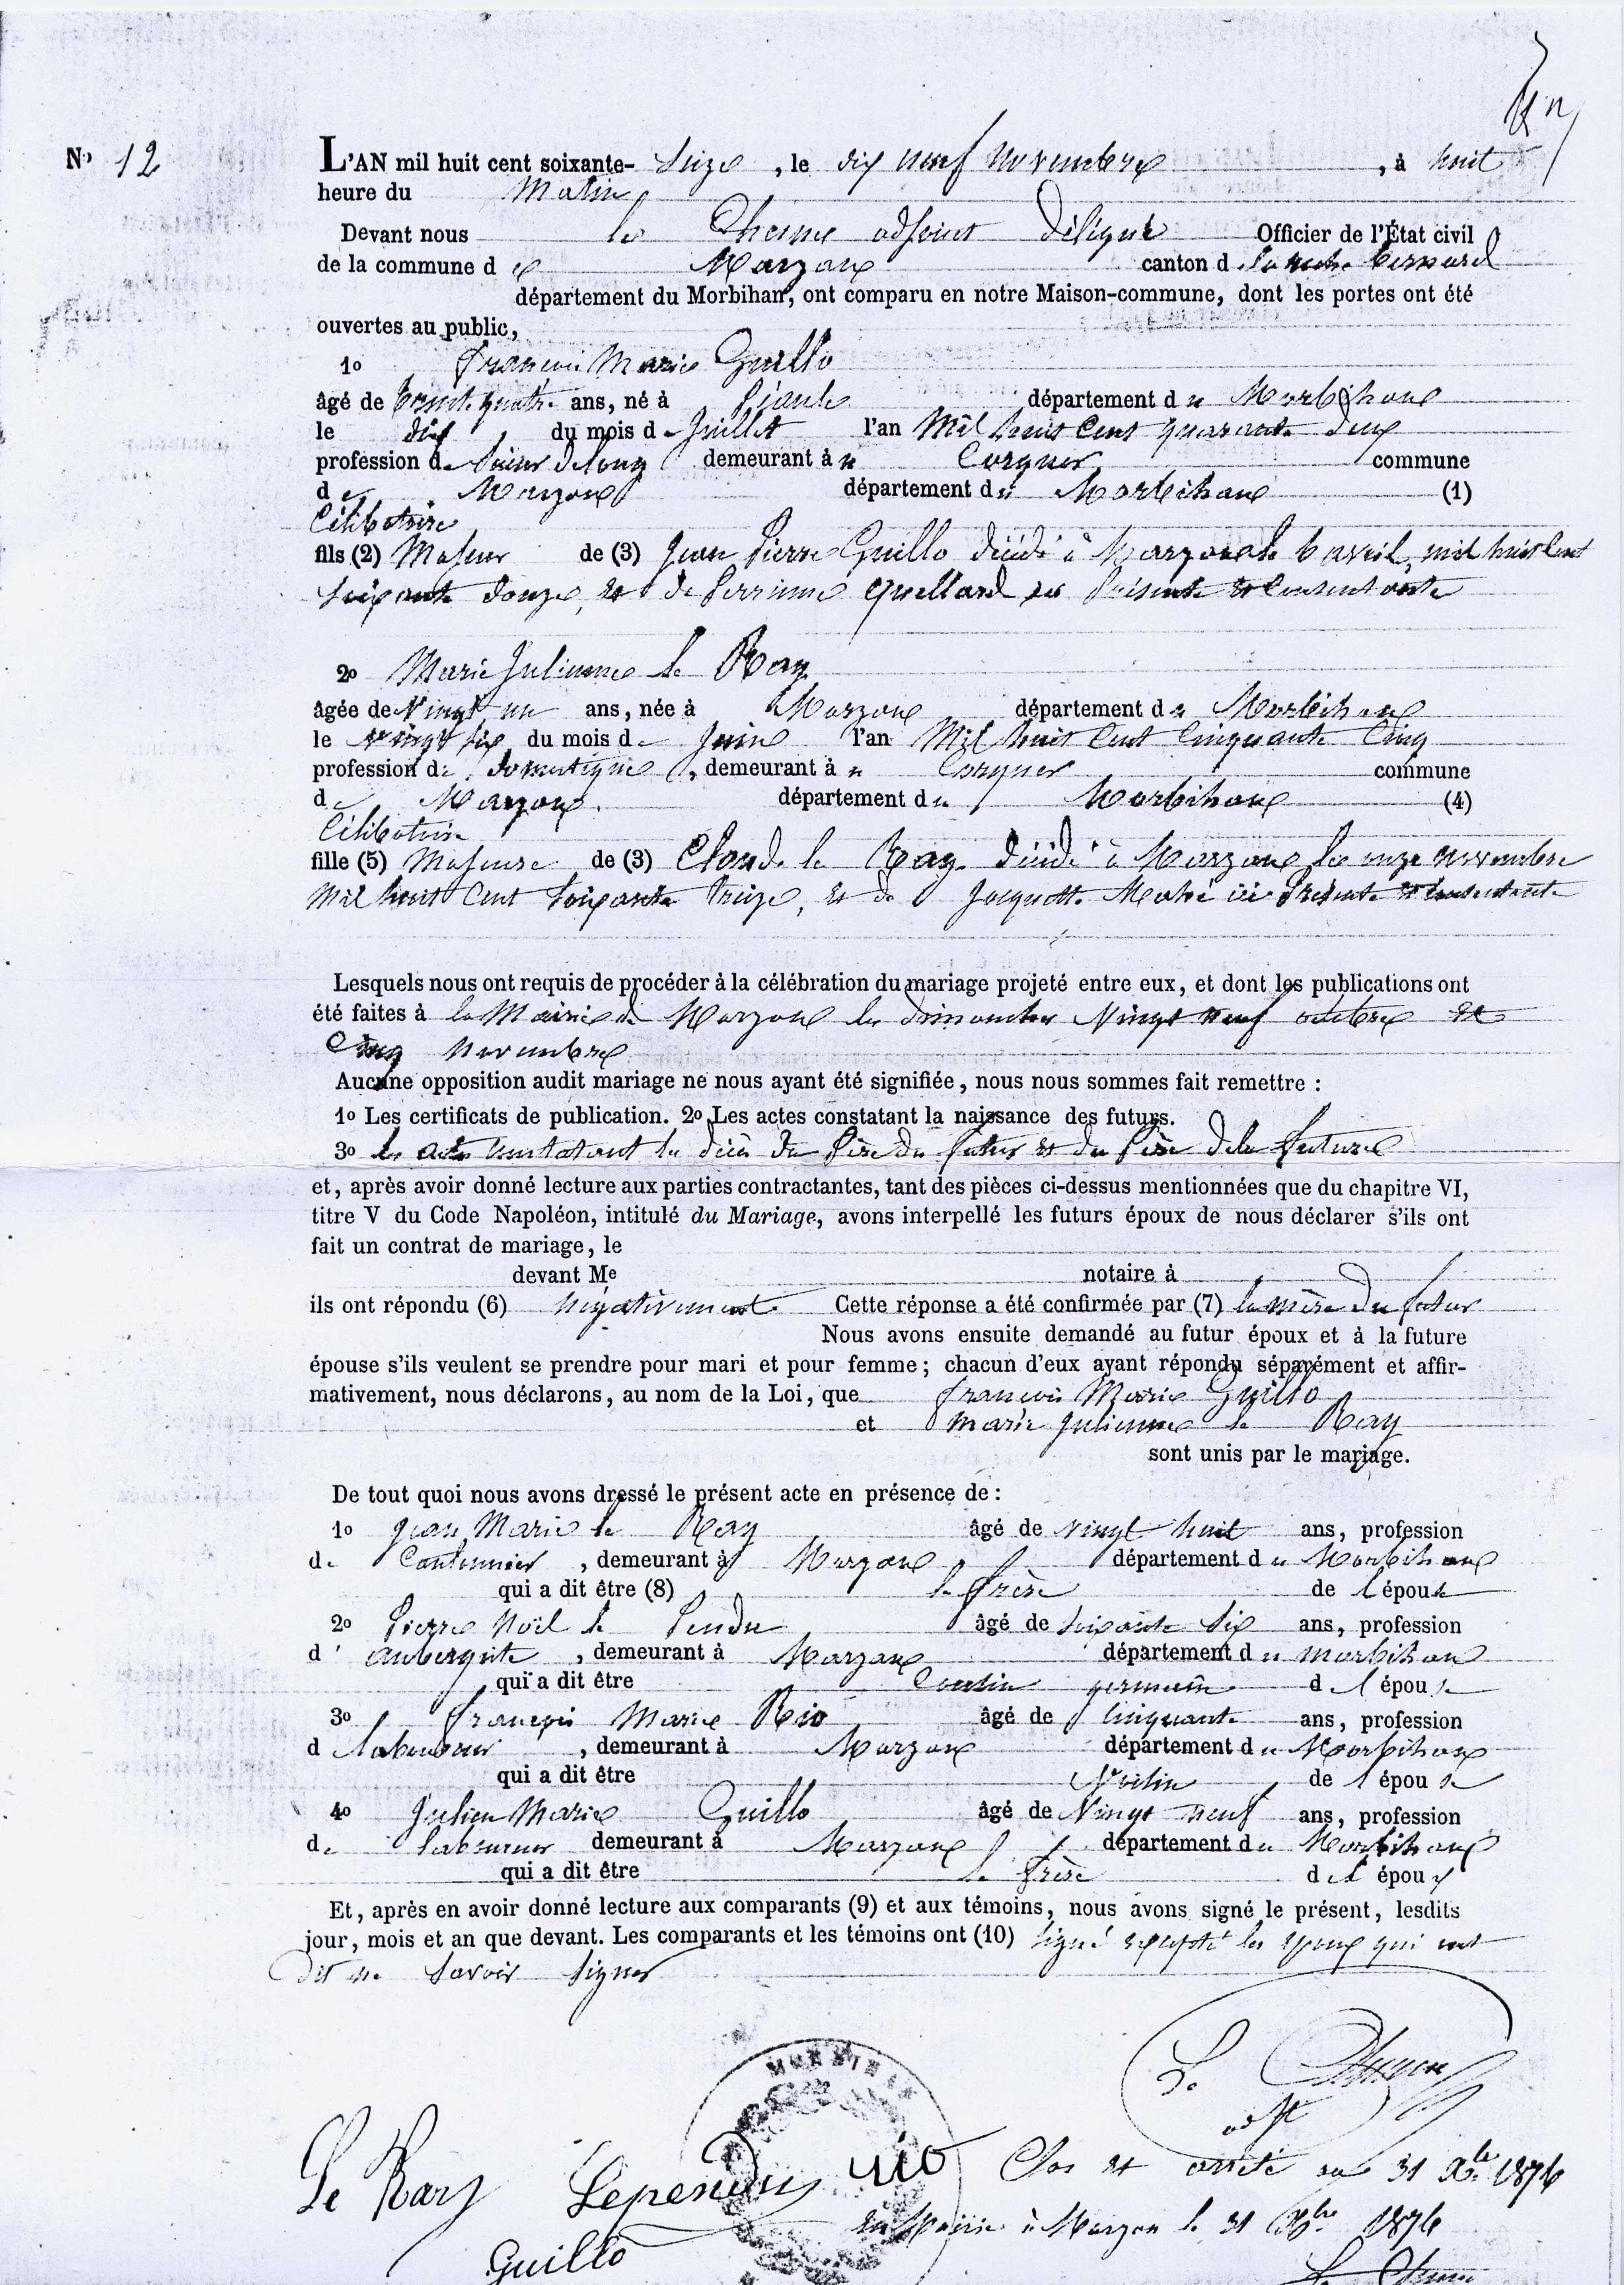 No 12
L'AN mil huit cent soixante- Seize, le dix neuf Novembre, à huit
heure du Matin
Devant nous Le Chesne adjoint délégué Officier de l'État civil
de la commune de Marzan canton de la roche bernard
département du Morbihan, ont comparu en notre Maison-commune, dont les portes ont été
ouvertes au public,
1o François Marie Guillo
âgé de trente quatre ans, né à Péaule département du Morbihan
le dix du mois de Juillet l'an Mil huit Cent quarante deux
profession de Scieur de long demeurant à commune
de Marzan département du Morbihan (1)
Célibataire
fils (2) Majeur de (3) Jean Pierre Guillo décédé à Marzan le 6 avril, mil huit Cent
Soixante douze, et de Perrinne Guellard Présente et Consentante
2o Marie Julienne le Ray
âgée de Vingt un ans, née à Marzan département du Morbihan
le vingt six du mois de Juin l'an Mil huit Cent Cinquante Cinq
profession de domestique, demeurant à commune
de Marzan département du Morbihan (4)
Célibataire
fille (5) Majeure de (3) Claude le Ray décédé à Marzan le onze novembre
Mil huit Cent Soixante Treize, et de Jacquette Mahé ici Présente et Consentante
Lesquels nous ont requis de procéder à la célébration du mariage projeté entre eux, et dont les publications ont
été faites à la Mairie de Marzan les dimanches Vingt neuf octobre et
Cinq Novembre
Aucune opposition audit mariage ne nous ayant été signifiée, nous nous sommes fait remettre :
1o Les certificats de publication. 2o Les actes constatant la naissance des futurs.
3o les actes constatant le décès du Père du futur et du Père de la future
et, après avoir donné lecture aux parties contractantes, tant des pièces ci-dessus mentionnées que du chapitre VI,
titre V du Code Napoléon, intitulé du Mariage, avons interpellé les futurs époux de nous déclarer s'ils ont
fait un contrat de mariage, le
devant Me notaire à
ils ont répondu (6) négativement Cette réponse a été confirmée par (7) la mère du futur
Nous avons ensuite demandé au futur époux et à la future
épouse s'ils veulent se prendre pour mari et pour femme; chacun d'eux ayant répondu séparément et affir-
mativement, nous déclarons, au nom de la Loi, que François Marie Guillo
et Marie Julienne le Ray
sont unis par le mariage.
De tout quoi nous avons dressé le présent acte en présence de :
1o Jean Marie le Ray âgé de vingt huit ans, profession
de Cantonnier, demeurant à Marzan département du Morbihan
qui a dit être (8) le frère de l'épouse
2o Pierre Noël le Pendu âgé de soixante six ans, profession
d'aubergiste, demeurant à Marzan département du Morbihan
qui a dit être Cousin germain de l'épouse
3o François Marie Rio âgé de Cinquante ans, profession
d laboureur, demeurant à Marzan département du Morbihan
qui a dit être Voisin de l'épouse
4o Julien Marie Guillo âgé de Vingt neuf ans, profession
de laboureur demeurant à Marzan département du Morbihan
qui a dit être le frère de l'époux
Et, après en avoir donné lecture aux comparants (9) et aux témoins, nous avons signé le présent, lesdits
jour, mois et an que devant. Les comparants et les témoins ont (10) signé excepté les époux qui ont
dit ne Savoir Signer
Le Chesne
adjt
MORBIHAN
Le Ray Lependu rio Clos et arrêté au 31 Xbre 1876
En Mairie à Marzan le 31 Xbre 1876
Guillo Le Chesne